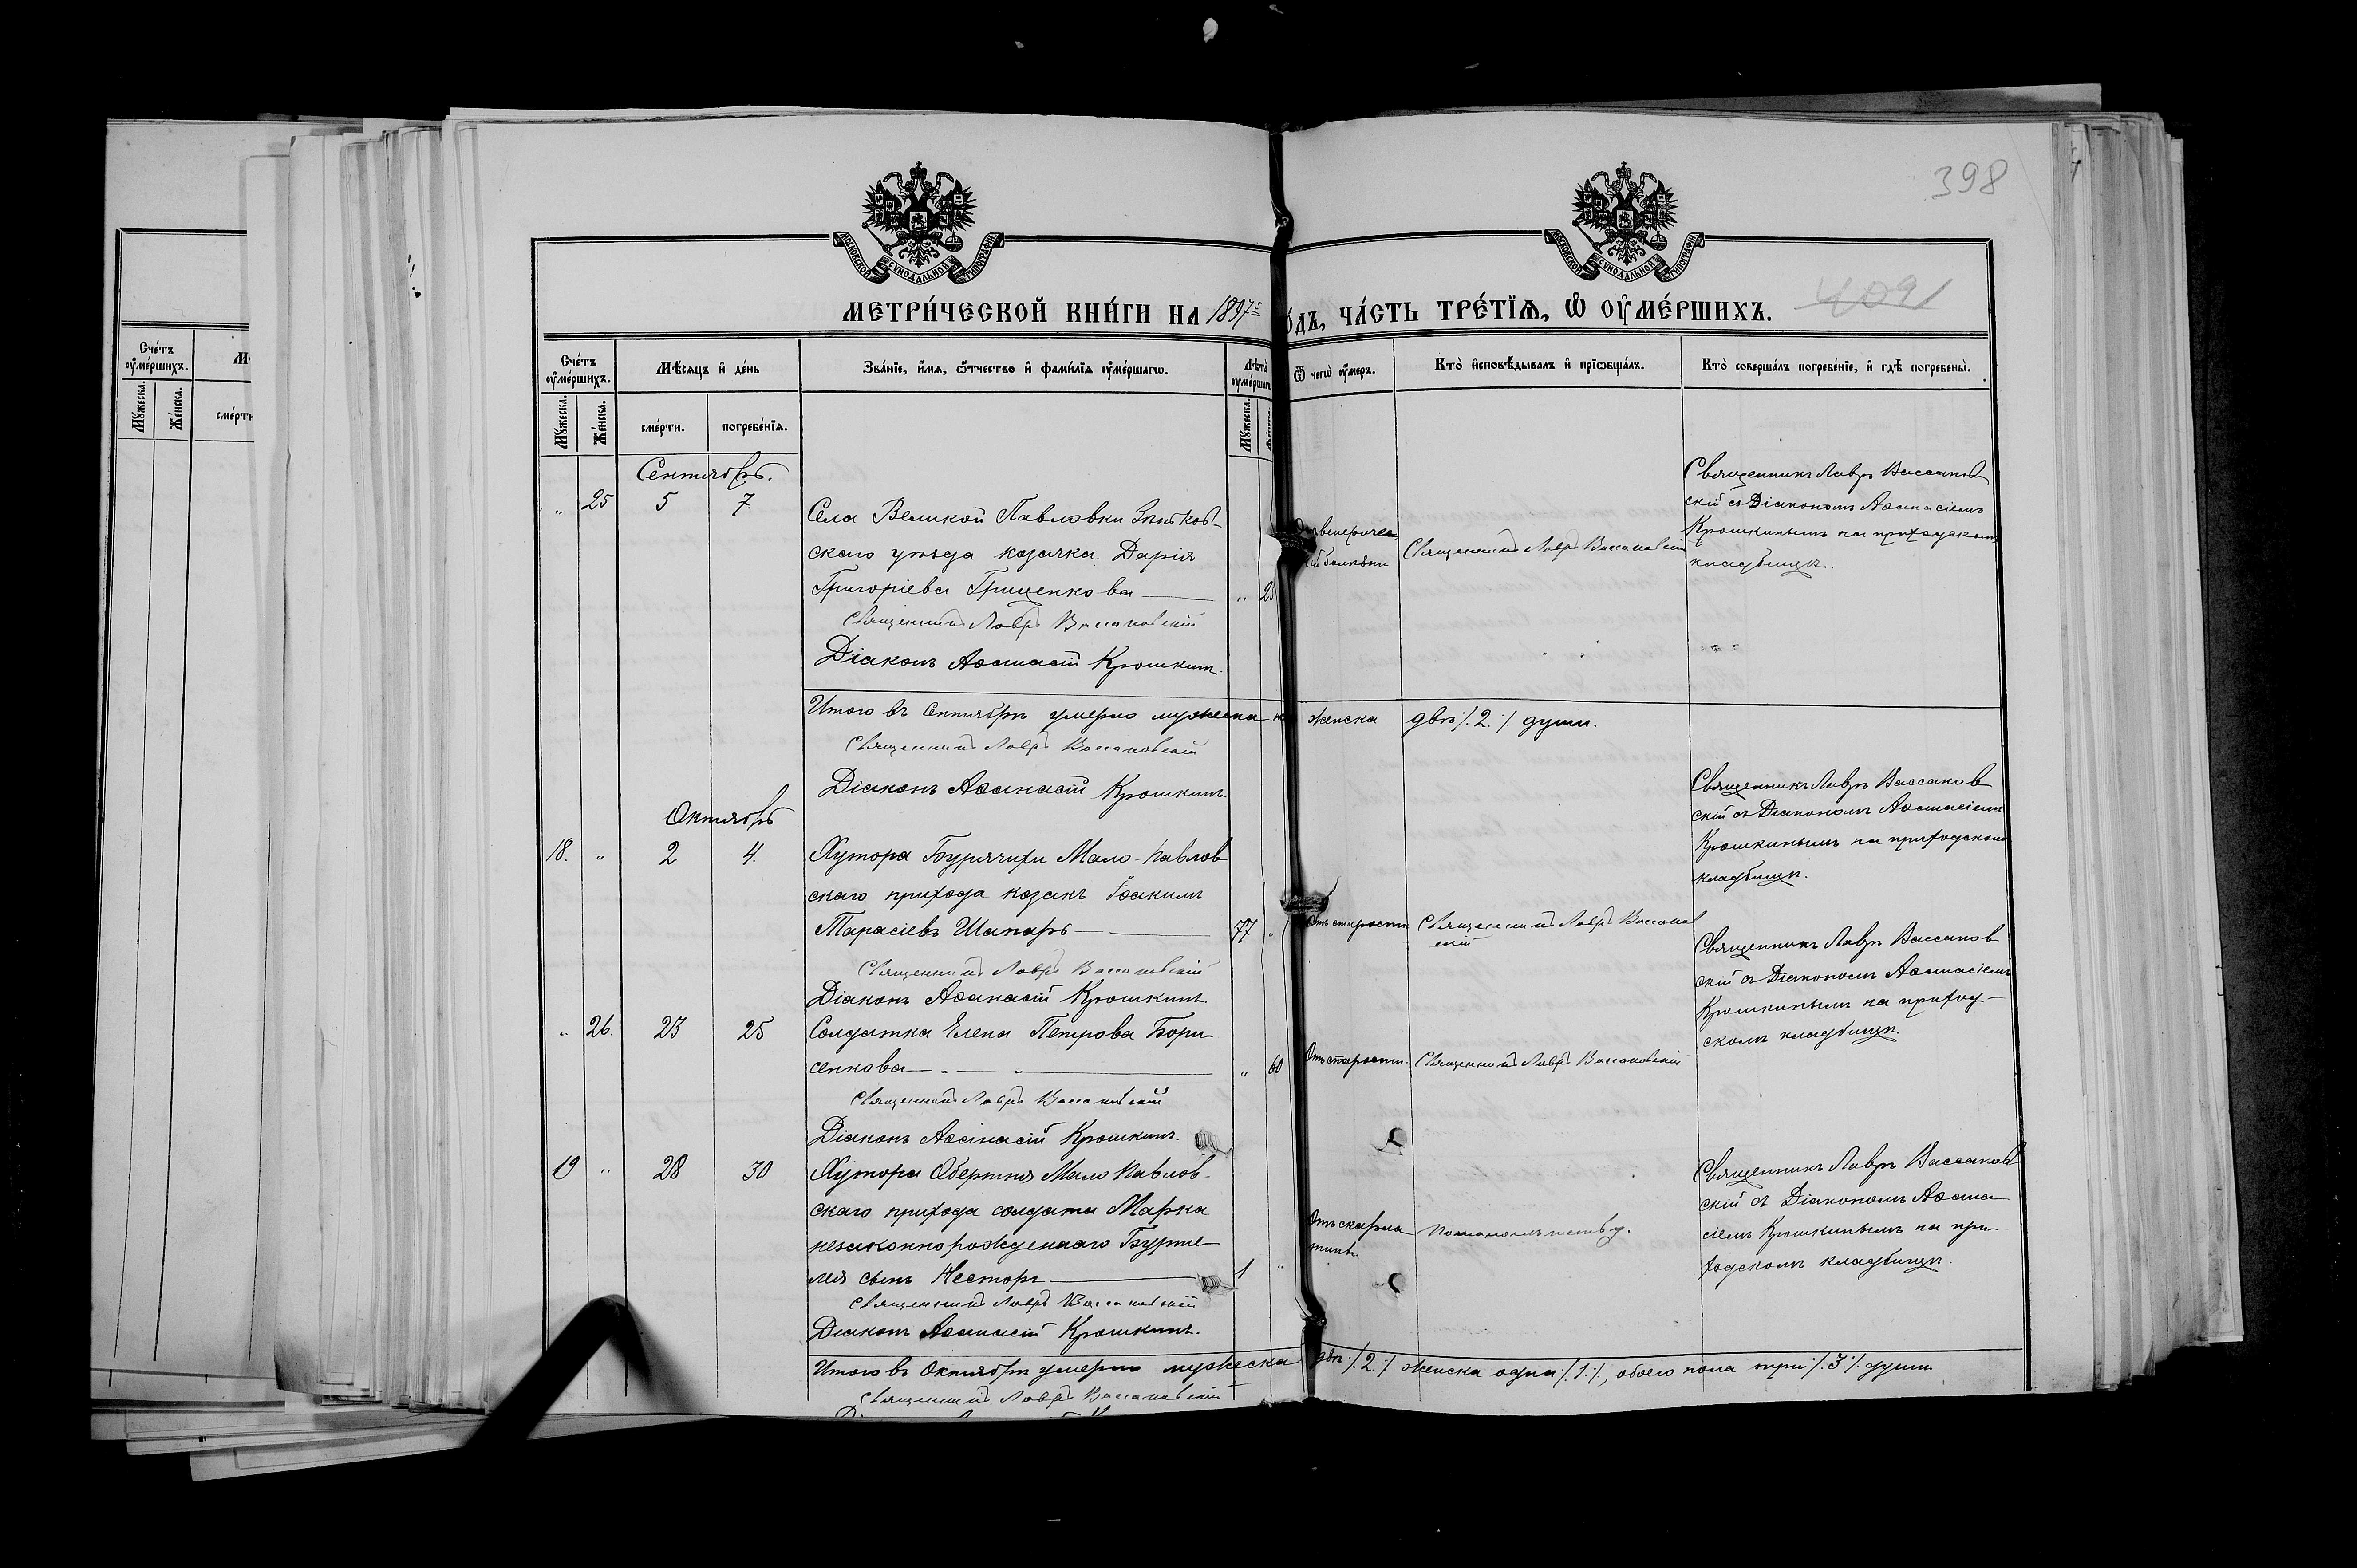 398
МОСКОВСКОЙ СѴНОДАЛЬНОЙ ТИПОГРАФІИ
МОСКОВСКОЙ СѴНОДАЛЬНОЙ ТИПОГРАФІИ
МЕТРИ́ЧЕСКОЙ КНИ́ГИ НА 1897 го́дъ, ЧА́СТЬ ТРЕ́ТІѦ, Ѡ҆ ОУ҆МЕ́РШИХЪ.
4091
Сче́тъ оу҆ме́ршихъ.
Мꙋ́жеска.
Же́нска.
Мѣ́сяцъ и҆ де́нь
сме́рти.
погребе́нїѧ.
Зва́нїе, и҆́мѧ, ѻ҆́тчество и҆ фами́лїѧ оу҆ме́ршагѡ.
Лѣ́та оу҆ме́ршагѡ
Мꙋ́жеска.
Ѿ чегѡ̀ оу҆́меръ.
Кто̀ и҆сповѣ́дывалъ и҆ прїѡбща́лъ.
Кто̀ соверша́лъ погребе́нїе, и҆ гдѣ̀ погребены̀.
Сентябрь.
„ 25 5 7
Села Великой Павловки Зѣньков-
скаго уѣзда козачка Дарія
Григоріева Грищенкова
Священникъ Лавръ Вассаковскій
Діаконъ Аѳанасій Крошкинъ.
болѣзни
Священникъ Лавръ Вассаковскій
Священникъ Лавръ Вассаков
скій съ Діакономъ Аѳанасіемъ
Крошкинымъ на приходскомъ
кладбищѣ.
Итого въ Сентябрѣ умерло мужеска
женска двѣ /.2./ души.
Священникъ Лавръ Вассаковскій
Діаконъ Аѳанасій Крошкинъ.
Октябрь
18. „ 2 4.
Хутора Бурячихи Мало-Павлов
скаго прихода козакъ Іоакимъ
Тарасіевъ Шапарь 77 „
Священникъ Лавръ Вассаковскій
Діаконъ Аѳанасій Крошкинъ.
Отъ старости
Священникъ Лавръ Вассаков
скій
Священникъ Лавръ Вассаков
скій съ Діакономъ Аѳанасіемъ
Крошкинымъ на приходскомъ
кладбищѣ.
„ 26. 23 25
Солдатка Елена Петрова Бори-
сенкова „ 60
Священникъ Лавръ Вассаковскій
Діаконъ Аѳанасій Крошкинъ.
Отъ старости.
Священникъ Лавръ Вассаковскій
Священникъ Лавръ Вассаков
скій съ Діакономъ Аѳанасіемъ
Крошкинымъ на приход-
скомъ кладбищѣ.
19 „ 28 30
Хутора Обертня Мало Павлов-
скаго прихода солдата Марка
незаконнорожденнаго
сынъ Несторъ 1 „
Священникъ Лавръ Вассаковскій
Діаконъ Аѳанасій Крошкинъ.
Отъ скарла
тины
Священникъ Лавръ Вассаков
скій съ Діакономъ Аѳана
сіемъ Крошкинымъ на при-
ходскомъ кладбищѣ.
Итого въ Октябрѣ умерло мужеска двѣ /.2./ женска одна /.1./, обоего пола три /.3./ души
Священникъ Лавръ Вассаковскій